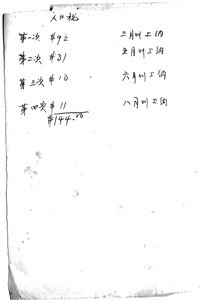 人口税
第一次 $92 三月卅上納
第二次 $31 五月卅上納
第三次 $10 六月卅上納
第四次 $11 八月卅上納
$144.00